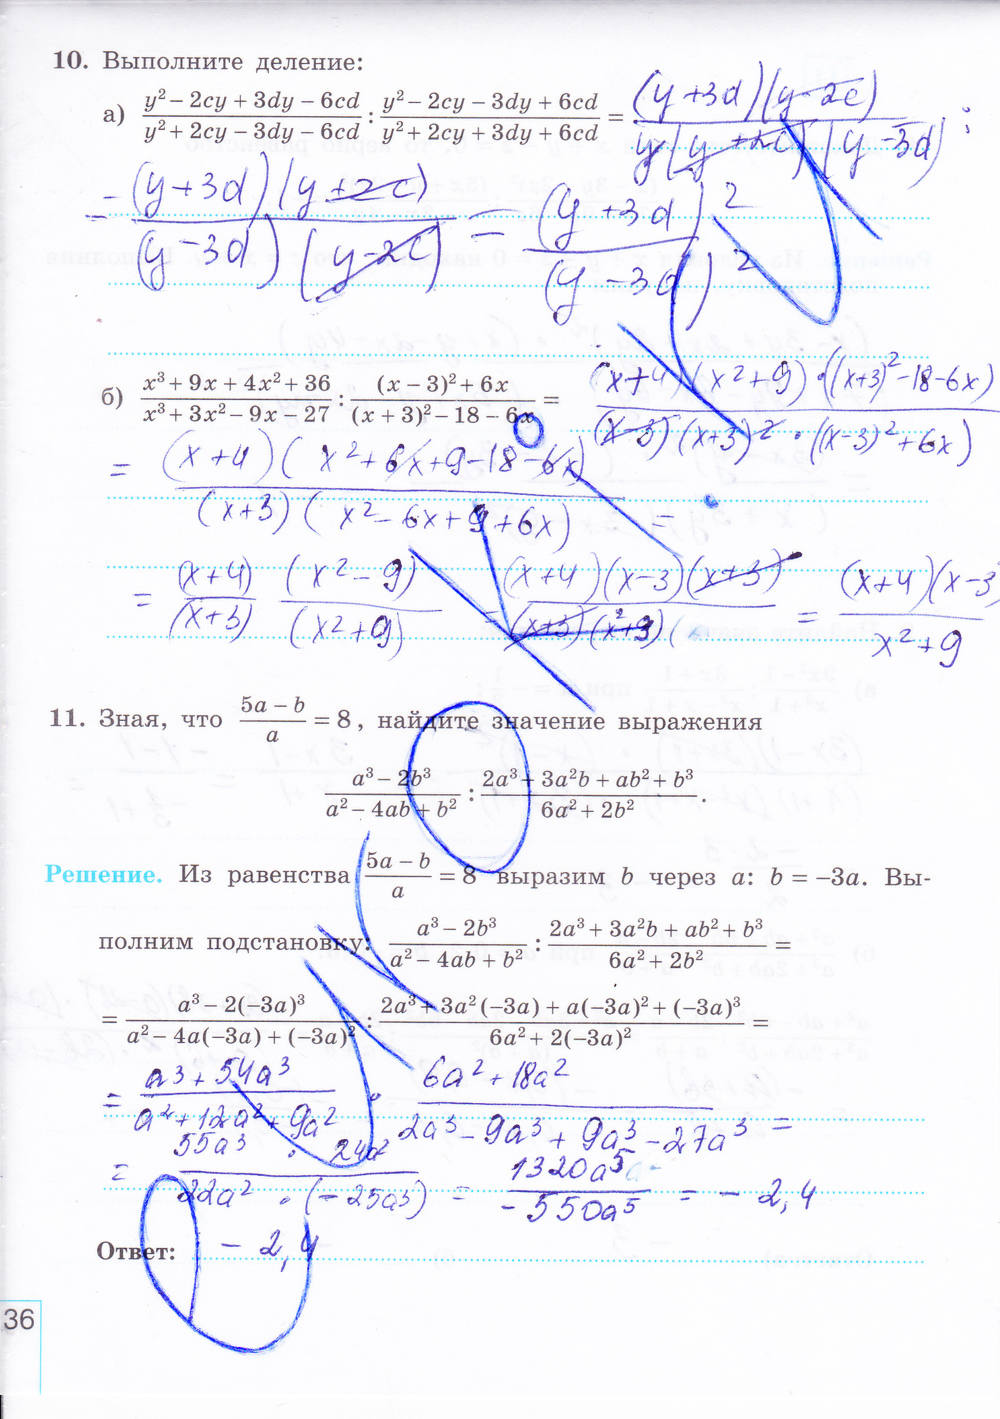 10. Выполните деление:
а) (y² − 2cy + 3dy − 6cd)/(y² + 2cy − 3dy − 6cd) : (y² − 2cy − 3dy + 6cd)/(y² + 2cy + 3dy + 6cd) = (y + 3d)(y − 2c)/(y(y + 2c)(y − 3d) :
= (y + 3d)(y + 2c)/(y − 3d)(y − 2c) = (y + 3d)²/(y − 3d)²
б) (x³ + 9x + 4x² + 36)/(x³ + 3x² − 9x − 27) : ((x − 3)² + 6x)/((x + 3)² − 18 − 6x) = (x + 4)(x² + 9) · ((x + 3)² − 18 − 6x)/(x − 3)(x + 3)² · ((x − 3)² + 6x)
= (x + 4)(x² + 6x + 9 − 18 − 6x)/(x + 3)(x² − 6x + 9 + 6x) =
= (x + 4)/(x + 3) (x² − 9)/(x² + 9) = (x + 4)(x − 3)(x + 3)/(x + 3)(x² + 9) = (x + 4)(x − 3)/x² + 9
11. Зная, что (5a − b)/a = 8, найдите значение выражения
(a³ − 2b³)/(a² − 4ab + b²) : (2a³ + 3a²b + ab² + b³)/(6a² + 2b²).
Решение. Из равенства (5a − b)/a = 8 выразим b через a: b = −3a. Вы-
полним подстановку: (a³ − 2b³)/(a² − 4ab + b²) : (2a³ + 3a²b + ab² + b³)/(6a² + 2b²) =
= (a³ − 2(−3a)³)/(a² − 4a(−3a) + (−3a)²) : (2a³ + 3a²(−3a) + a(−3a)² + (−3a)³)/(6a² + 2(−3a)²) =
= (a³ + 54a³)/(a² + 12a² + 9a²) · (6a² + 18a²)/(2a³ − 9a³ + 9a³ − 27a³) =
= 55a³ · 24a²/22a² · (−25a³) = 1320a⁵/−550a⁵ = −2,4
Ответ: −2,4
36